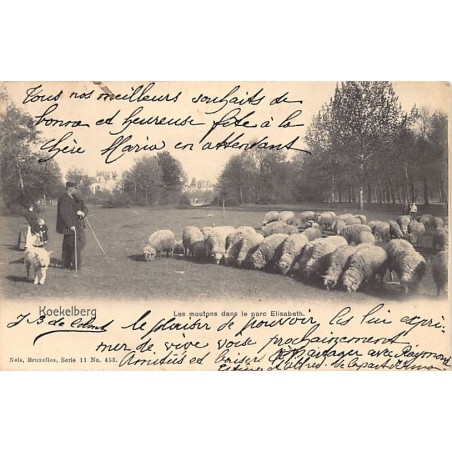 Tous nos meilleurs souhaits de
bonne et heureuse fête à la
chère Maria en attendant
Koekelberg
Les moutons dans le parc Elisabeth.
le plaisir de pouvoir les lui expri-
mer de vive voix prochainement
Amitiés et baisers à partager avec Raymond
et Alfred. de la part de
Nels, Bruxelles, Serie 11 No. 453.